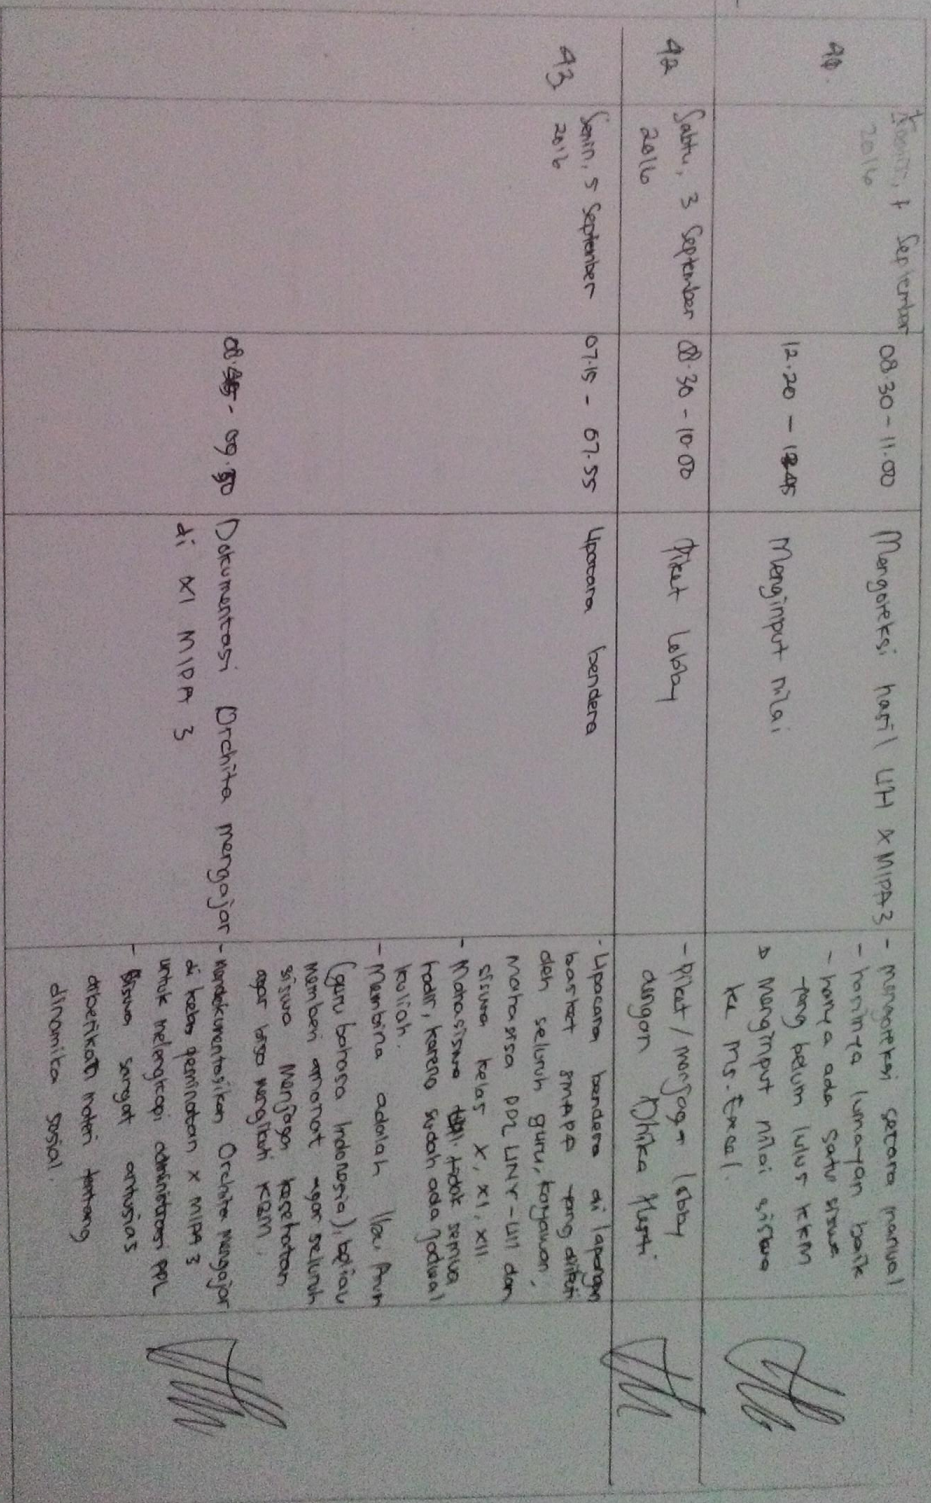 41.
Kamis, 1 September
2016
08.30 - 11.00
Mengoreksi hasil UH X MIPA 3
- mengoreksi secara manual
- hasilnya lumayan baik
- hanya ada satu siswa
yang belum lulus KKM
12.20 -
Menginput nilai
Menginput nilai siswa
ke Ms. Excel.
42
Sabtu, 3 September
2016
08.30 - 10.00
Piket Lobby
- piket / menjaga lobby
dengan Dhika
43
Senin, 5 September
2016
07.15 - 07.55
Upacara bendera
- Upacara bendera di lapangan
basket SMAPA yang diikuti
oleh seluruh guru, karyawan,
mahasiswa PPL UNY - UII dan
siswa kelas X, XI, XII
- Mahasiswa tidak semua
hadir, karena sudah ada jadwal
kuliah.
- Membina adalah Ibu
(guru bahasa Indonesia), beliau
memberi amanat agar seluruh
siswa menjaga kesehatan
agar bisa mengikuti KBM.
- 09.30
Dokumentasi Orchita mengajar
di XI MIPA 3
- Mendokumentasikan Orchita mengajar
di kelas peminatan X MIPA 3
untuk melengkapi administrasi PPL
- Siswa sangat antusias
diberikan materi tentang
dinamika sosial.